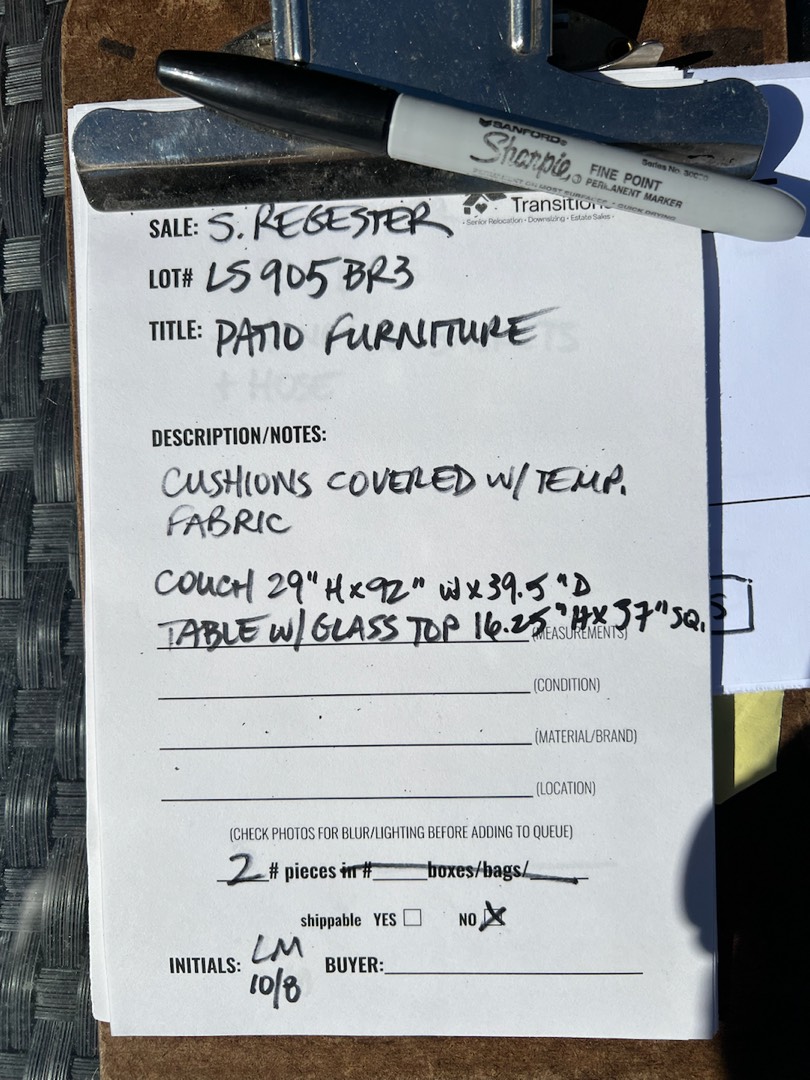 SANFORD®
Sharpie®
FINE POINT
PERMANENT MARKER
Series No.
Transition
Senior Relocation • Downsizing • Estate Sales •
SALE: S. REGESTER
LOT# LS905BR3
TITLE: PATIO FURNITURE
+ HOSE
DESCRIPTION/NOTES:
CUSHIONS COVERED W/ TEMP.
FABRIC
COUCH 29" H x 92" W x 39.5" D
TABLE W/ GLASS TOP 16.25" H x 37" SQ.
(MEASUREMENTS)
S
(CONDITION)
(MATERIAL/BRAND)
(LOCATION)
(CHECK PHOTOS FOR BLUR/LIGHTING BEFORE ADDING TO QUEUE)
2 # pieces in #____boxes/bags/____
shippable YES ☐ NO ☒
INITIALS: LM BUYER:
10/8